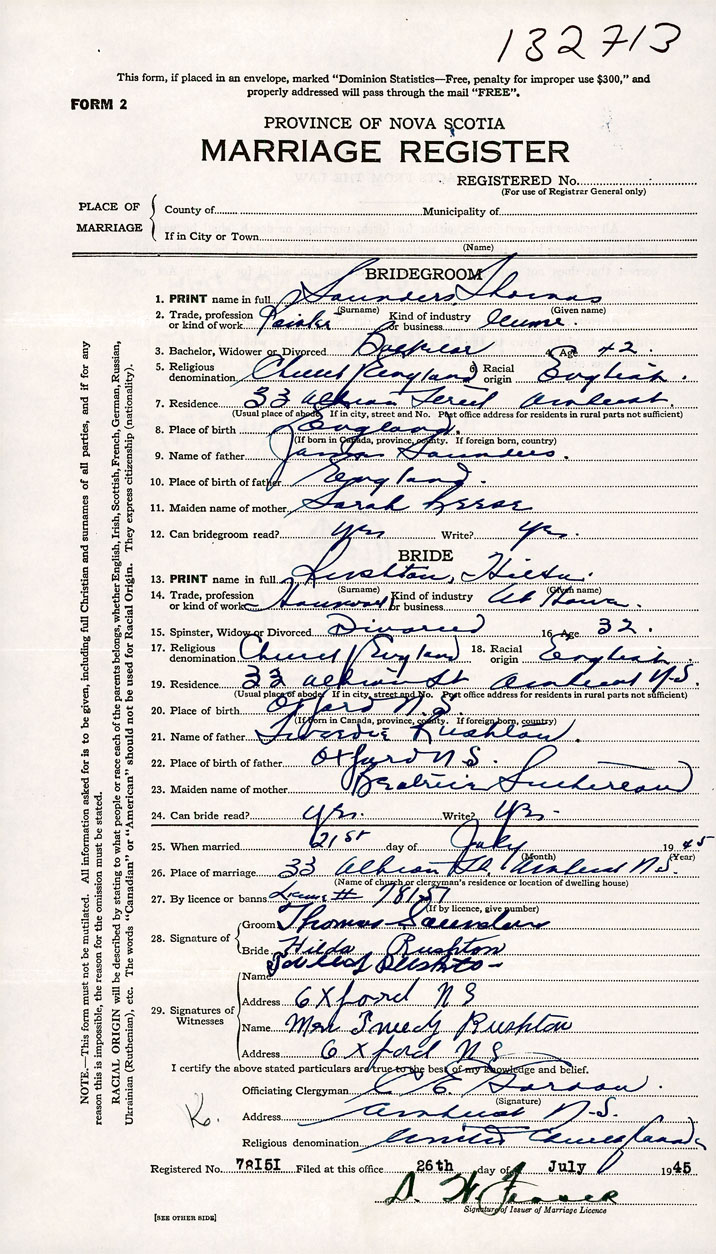 132713
This form, if placed in an envelope, marked "Dominion Statistics—Free, penalty for improper use $300," and
properly addressed will pass through the mail "FREE".
FORM 2
PROVINCE OF NOVA SCOTIA
MARRIAGE REGISTER
REGISTERED No.
(For use of Registrar General only)
PLACE OF MARRIAGE
County of Municipality of
If in City or Town
(Name)
BRIDEGROOM
1. PRINT name in full Saunders Thomas
(Surname) (Given name)
2. Trade, profession or kind of work Kind of industry or business
3. Bachelor, Widower or Divorced Bachelor 4. Age 42.
5. Religious denomination Church England 6. Racial origin English.
7. Residence 33 Albion Street Amherst.
(Usual place of abode. If in city, street and No. Post office address for residents in rural parts not sufficient)
8. Place of birth England.
(If born in Canada, province, county. If foreign born, country)
9. Name of father James Saunders.
10. Place of birth of father England.
11. Maiden name of mother Sarah
12. Can bridegroom read? yes Write? yes.
BRIDE
13. PRINT name in full Rushton, Hilda.
(Surname) (Given name)
14. Trade, profession or kind of work Housework Kind of industry or business At Home.
15. Spinster, Widow or Divorced Divorced 16. Age 32.
17. Religious denomination Church England 18. Racial origin English
19. Residence 33 Albion St Amherst N.S.
(Usual place of abode. If in city, street and No. Post office address for residents in rural parts not sufficient)
20. Place of birth Oxford N.S.
(If born in Canada, province, county. If foreign born, country)
21. Name of father Rushton.
22. Place of birth of father Oxford N.S.
23. Maiden name of mother Beatrice
24. Can bride read? yes. Write? yes.
25. When married 21st day of July 1945
(Month) (Year)
26. Place of marriage 33 Albion St. Amherst N.S.
(Name of church or clergyman's residence or location of dwelling house)
27. By licence or banns 78151
(If by licence, give number)
28. Signature of
Groom Thomas Saunders
Bride Hilda Rushton
29. Signatures of Witnesses
Name Rushton
Address Oxford NS
Name Mrs Tweedy Rushton
Address Oxford NS
I certify the above stated particulars are true to the best of my knowledge and belief.
Officiating Clergyman
(Signature)
Address Amherst N.S.
Religious denomination United Church Canada
K.
Registered No. 78151 Filed at this office 26th day of July 1945
Signature of Issuer of Marriage Licence
[SEE OTHER SIDE]
NOTE.—This form must not be mutilated. All information asked for is to be given, including full Christian and surnames of all parties, and if for any
reason this is impossible, the reason for the omission must be stated.
RACIAL ORIGIN will be described by stating to what people or race each of the parents belongs, whether English, Irish, Scottish, French, German, Russian,
Ukrainian (Ruthenian), etc. The words "Canadian" or "American" should not be used for Racial Origin. They express citizenship (nationality).